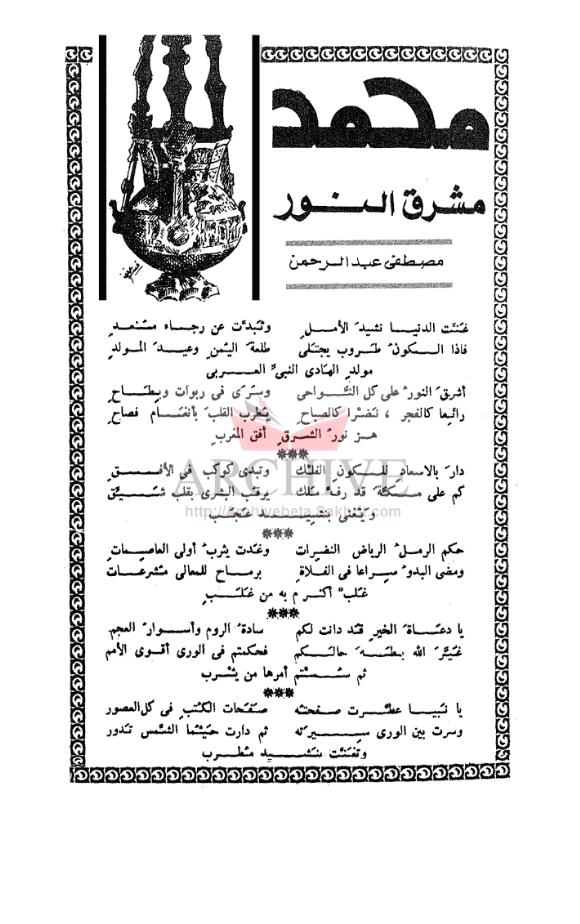 محمد
مشرق النور
مصطفى عبدالرحمن
غنت الدنيا نشيد الأمل وتبدت عن رجاء مسعد
فاذا الكون طروب يجتلى طلعة اليمن وعيد المولد
مولد الهادى النبى العربى
أشرق النور على كل النواحى وسرى فى ربوات وبطاح
رائعا كالفجر ، نضرا كالصباح يطرب القلب بأنغام فصاح
هز نور الشرق أفق المغرب
***
دار بالاسعاد للكون الفلك وتبدى كوكب فى الأفق
كم على مكة قد رف ملك يرقب البشرى بقلب شيق
ويغنى بنشيد عجب
ARCHIVE
http://Archivebeta.Sakhrit.com
***
حكم الرمل الرياض النضرات وغدت يثرب أولى العاصمات
ومضى البدو سراعا فى الفلاة برماح للمعالى مشرعات
غلب أكرم به من غلب
***
يا دعاة الخير قد دانت لكم سادة الروم وأسوار العجم
غير الله بطه حالكم فحكمتم فى الورى أقوى الأمم
ثم سستم أمرها من يثرب
***
يا نبيا عطرت صفحته صفحات الكتب فى كل العصور
وسرت بين الورى سيرته ثم دارت حيثما الشمس تدور
وتغنت بنشيد مطرب